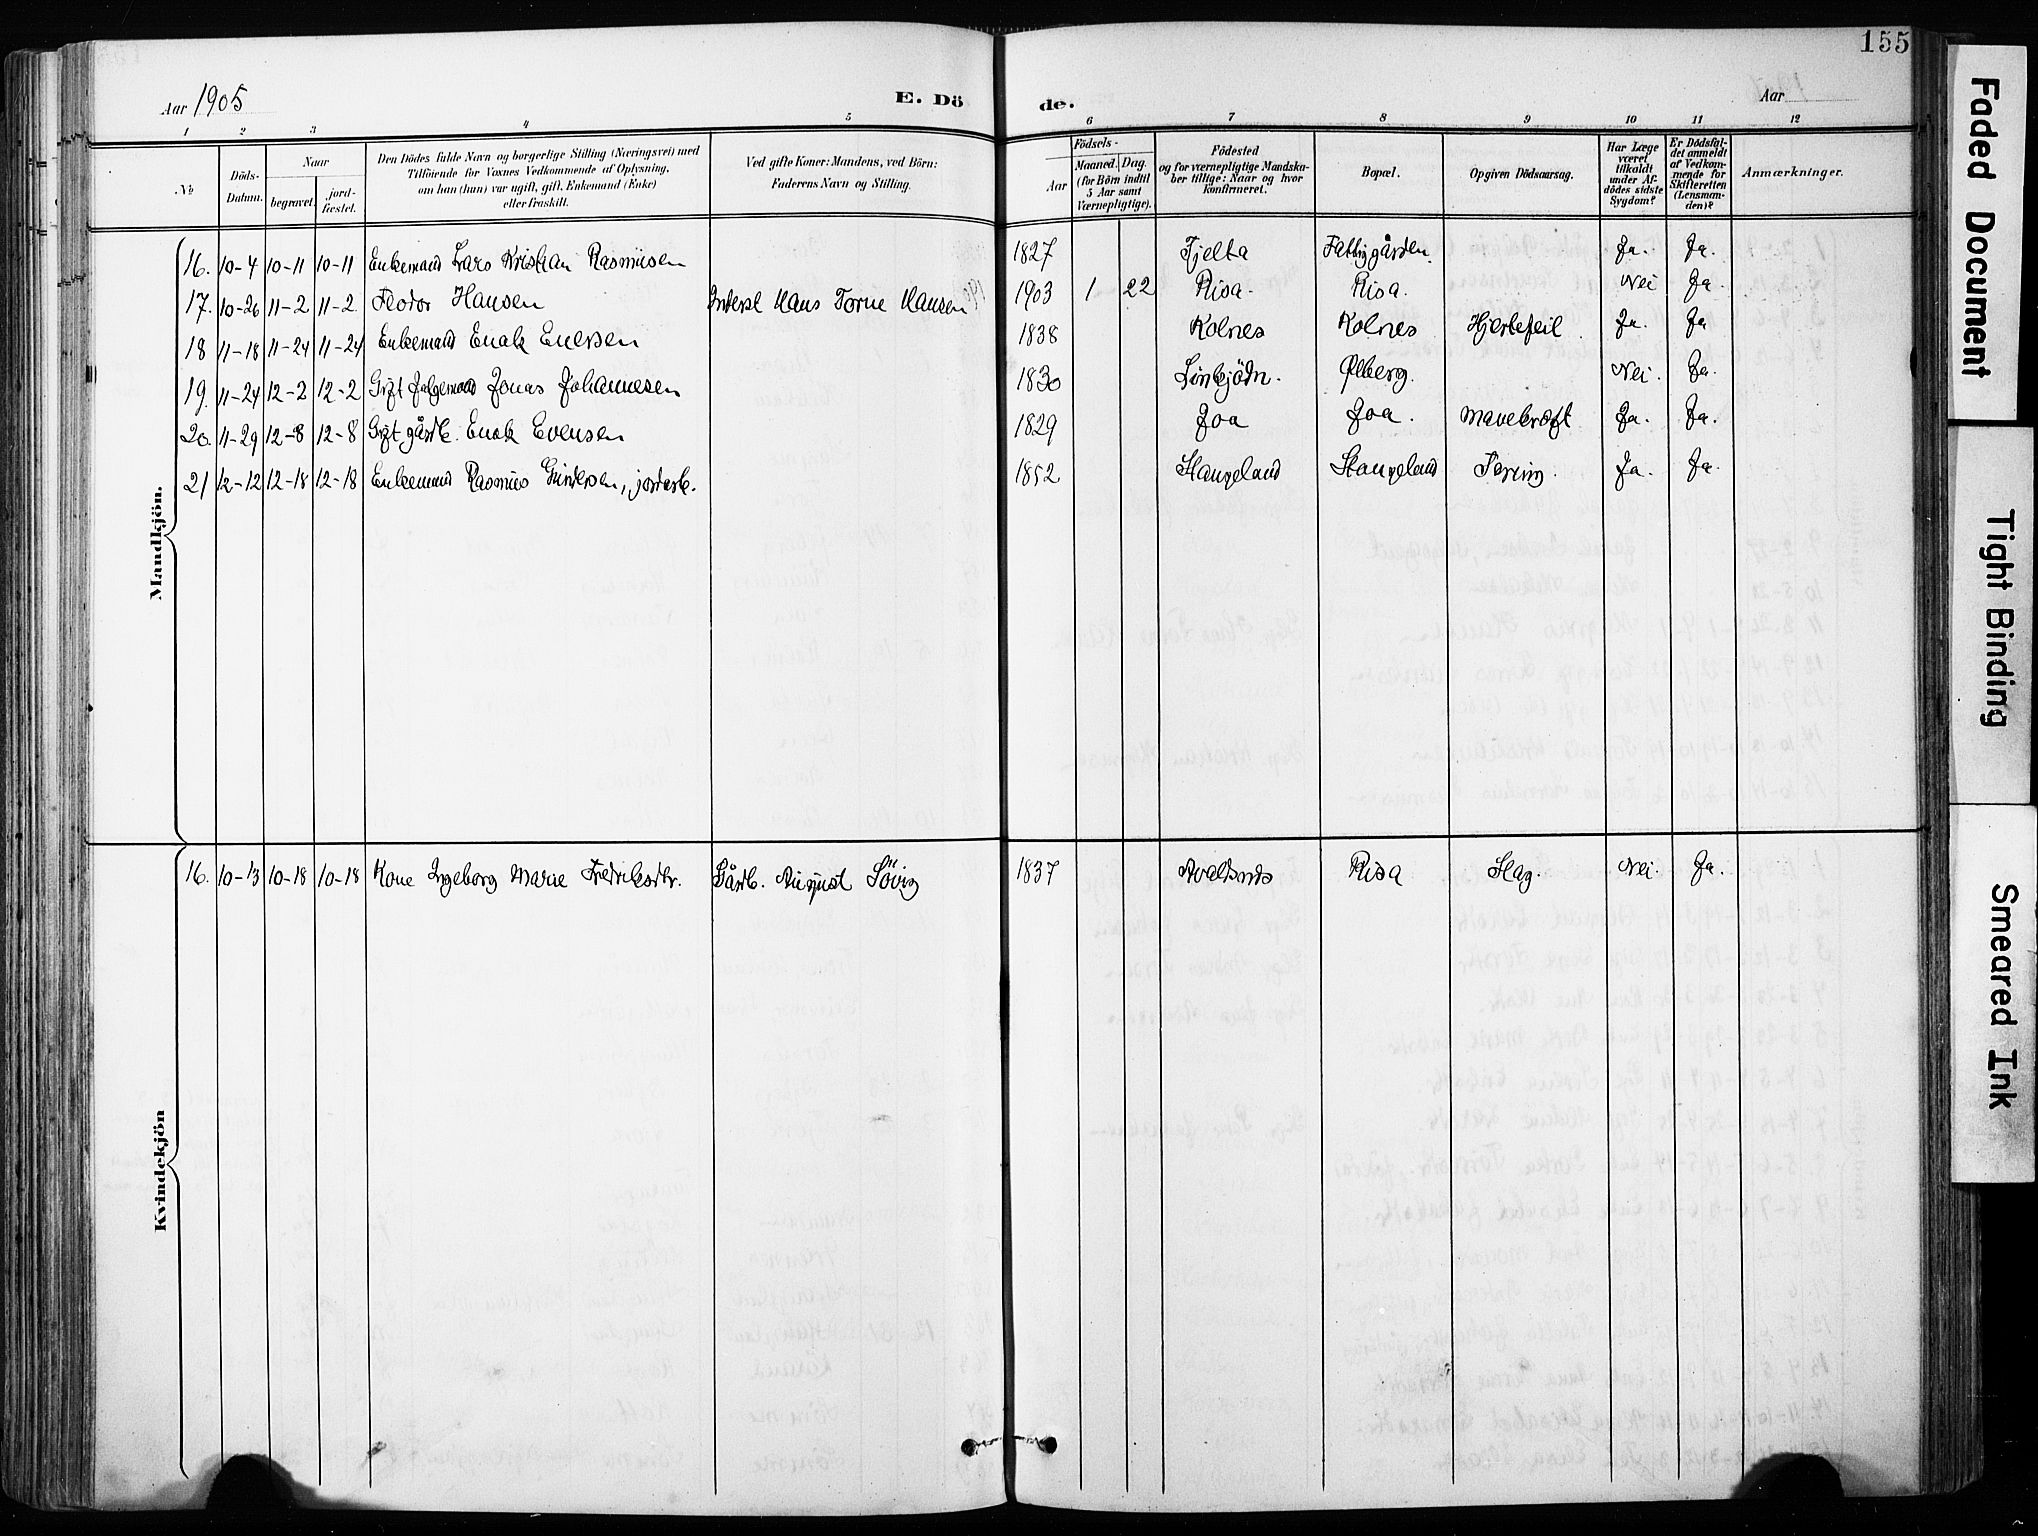 155
Aar 1905
E. Dö
de.
Aar
1 2 3 4 5 6 7 8 9 10 11 12
No
Döds-
Datum.
Naar
begravet.
jord-
fæstet.
Den Dödes fulde Navn og borgerlige Stilling (Næringsvei) med
Tilföiende for Voxnes Vedkommende af Oplysning,
om han (hun) var ugift, gift, Enkemand (Enke)
eller fraskilt.
Ved gifte Koner: Mandens, ved Börn:
Faderens Navn og Stilling.
Födsels-
Aar
Maaned. Dag.
(for Börn indtil
5 Aar samt
Værnepligtige).
Födested
og for værnepligtige Mandska-
ber tillige: Naar og hvor
konfirmeret.
Bopæl.
Opgiven Dödsaarsag.
Har Læge
været
tilkaldt
under Af-
dödes sidste
Sygdom?
Er Dödsfal-
det anmeldt
af Vedkom-
mende for
Skifteretten
(Lensman-
den)?
Anmærkninger.
Mandkjön.
16. 10-4 10-11 10-11 Enkemand Lars Kristian Rasmusen 1827 Fjelta Ja. Ja.
17. 10-26 11-2 11-2 Teodor Hansen Inderst Hans Torne Hansen 1903 1 22 Risa. Risa. Nei Ja.
18 11-18 11-24 11-24 Enkemand Enok Enersen 1838 Kolnes Kolnes Hjertefeil Ja. Ja
19. 11-24 12-2 12-2 Gift Jonas Johannesen 1830 Ølberg. Nei. Ja.
20. 11-29 12-8 12-8 Gift gårdb. Enok Evensen 1829 Joa Joa. Mavekræft Ja. Ja.
21 12-12 12-18 12-18 Enkemand Rasmus Gundersen, 1852 Stangeland Stangeland Tæring. Ja. Ja.
Kvindekjön
16. 10-13 10-18 10-18 Kone Ingeborg Marie Fredriksdtr. Gårdb. August Sövig 1837 Avaldsnes Risa Slag. Nei. Ja.
Faded Document
Tight Binding
Smeared Ink